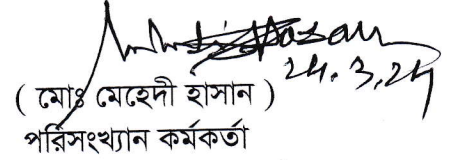 24.3.24
( মোঃ মেহেদী হাসান )
পরিসংখ্যান কর্মকর্তা